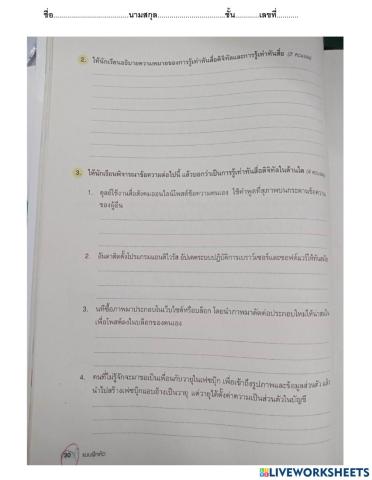 ชื่อ......................................นามสกุล..................................ชั้น............เลขที่...........
2. ให้นักเรียนอธิบายความหมายของการรู้เท่าทันสื่อดิจิทัลและการรู้เท่าทันสื่อ (2 คะแนน)
3. ให้นักเรียนพิจารณาข้อความต่อไปนี้ แล้วบอกว่าเป็นการรู้เท่าทันสื่อดิจิทัลในด้านใด (4 คะแนน)
1. ดุลย์ใช้งานสื่อสังคมออนไลน์โพสต์ข้อความตนเอง ใช้คำพูดที่สุภาพบนกระดานข้อความ
ของผู้อื่น
2. อันดาติดตั้งโปรแกรมแอนติไวรัส อัปเดตระบบปฏิบัติการเบราว์เซอร์และซอฟต์แวร์ให้ทันสมัย
3. นทีซื้อภาพมาประกอบในเว็บไซต์หรือบล็อก โดยนำภาพมาตัดต่อประกอบใหม่ให้น่าสนใจ
เพื่อโพสต์ลงในบล็อกของตนเอง
4. คนที่ไม่รู้จักจะมาขอเป็นเพื่อนกับวายุในเฟซบุ๊ก เพื่อเข้าถึงรูปภาพและข้อมูลส่วนตัว แล้ว
นำไปสร้างเฟซบุ๊กแอบอ้างเป็นวายุ แต่วายุได้ตั้งค่าความเป็นส่วนตัวในบัญชี
30 แบบฝึกหัด
LIVEWORKSHEETS